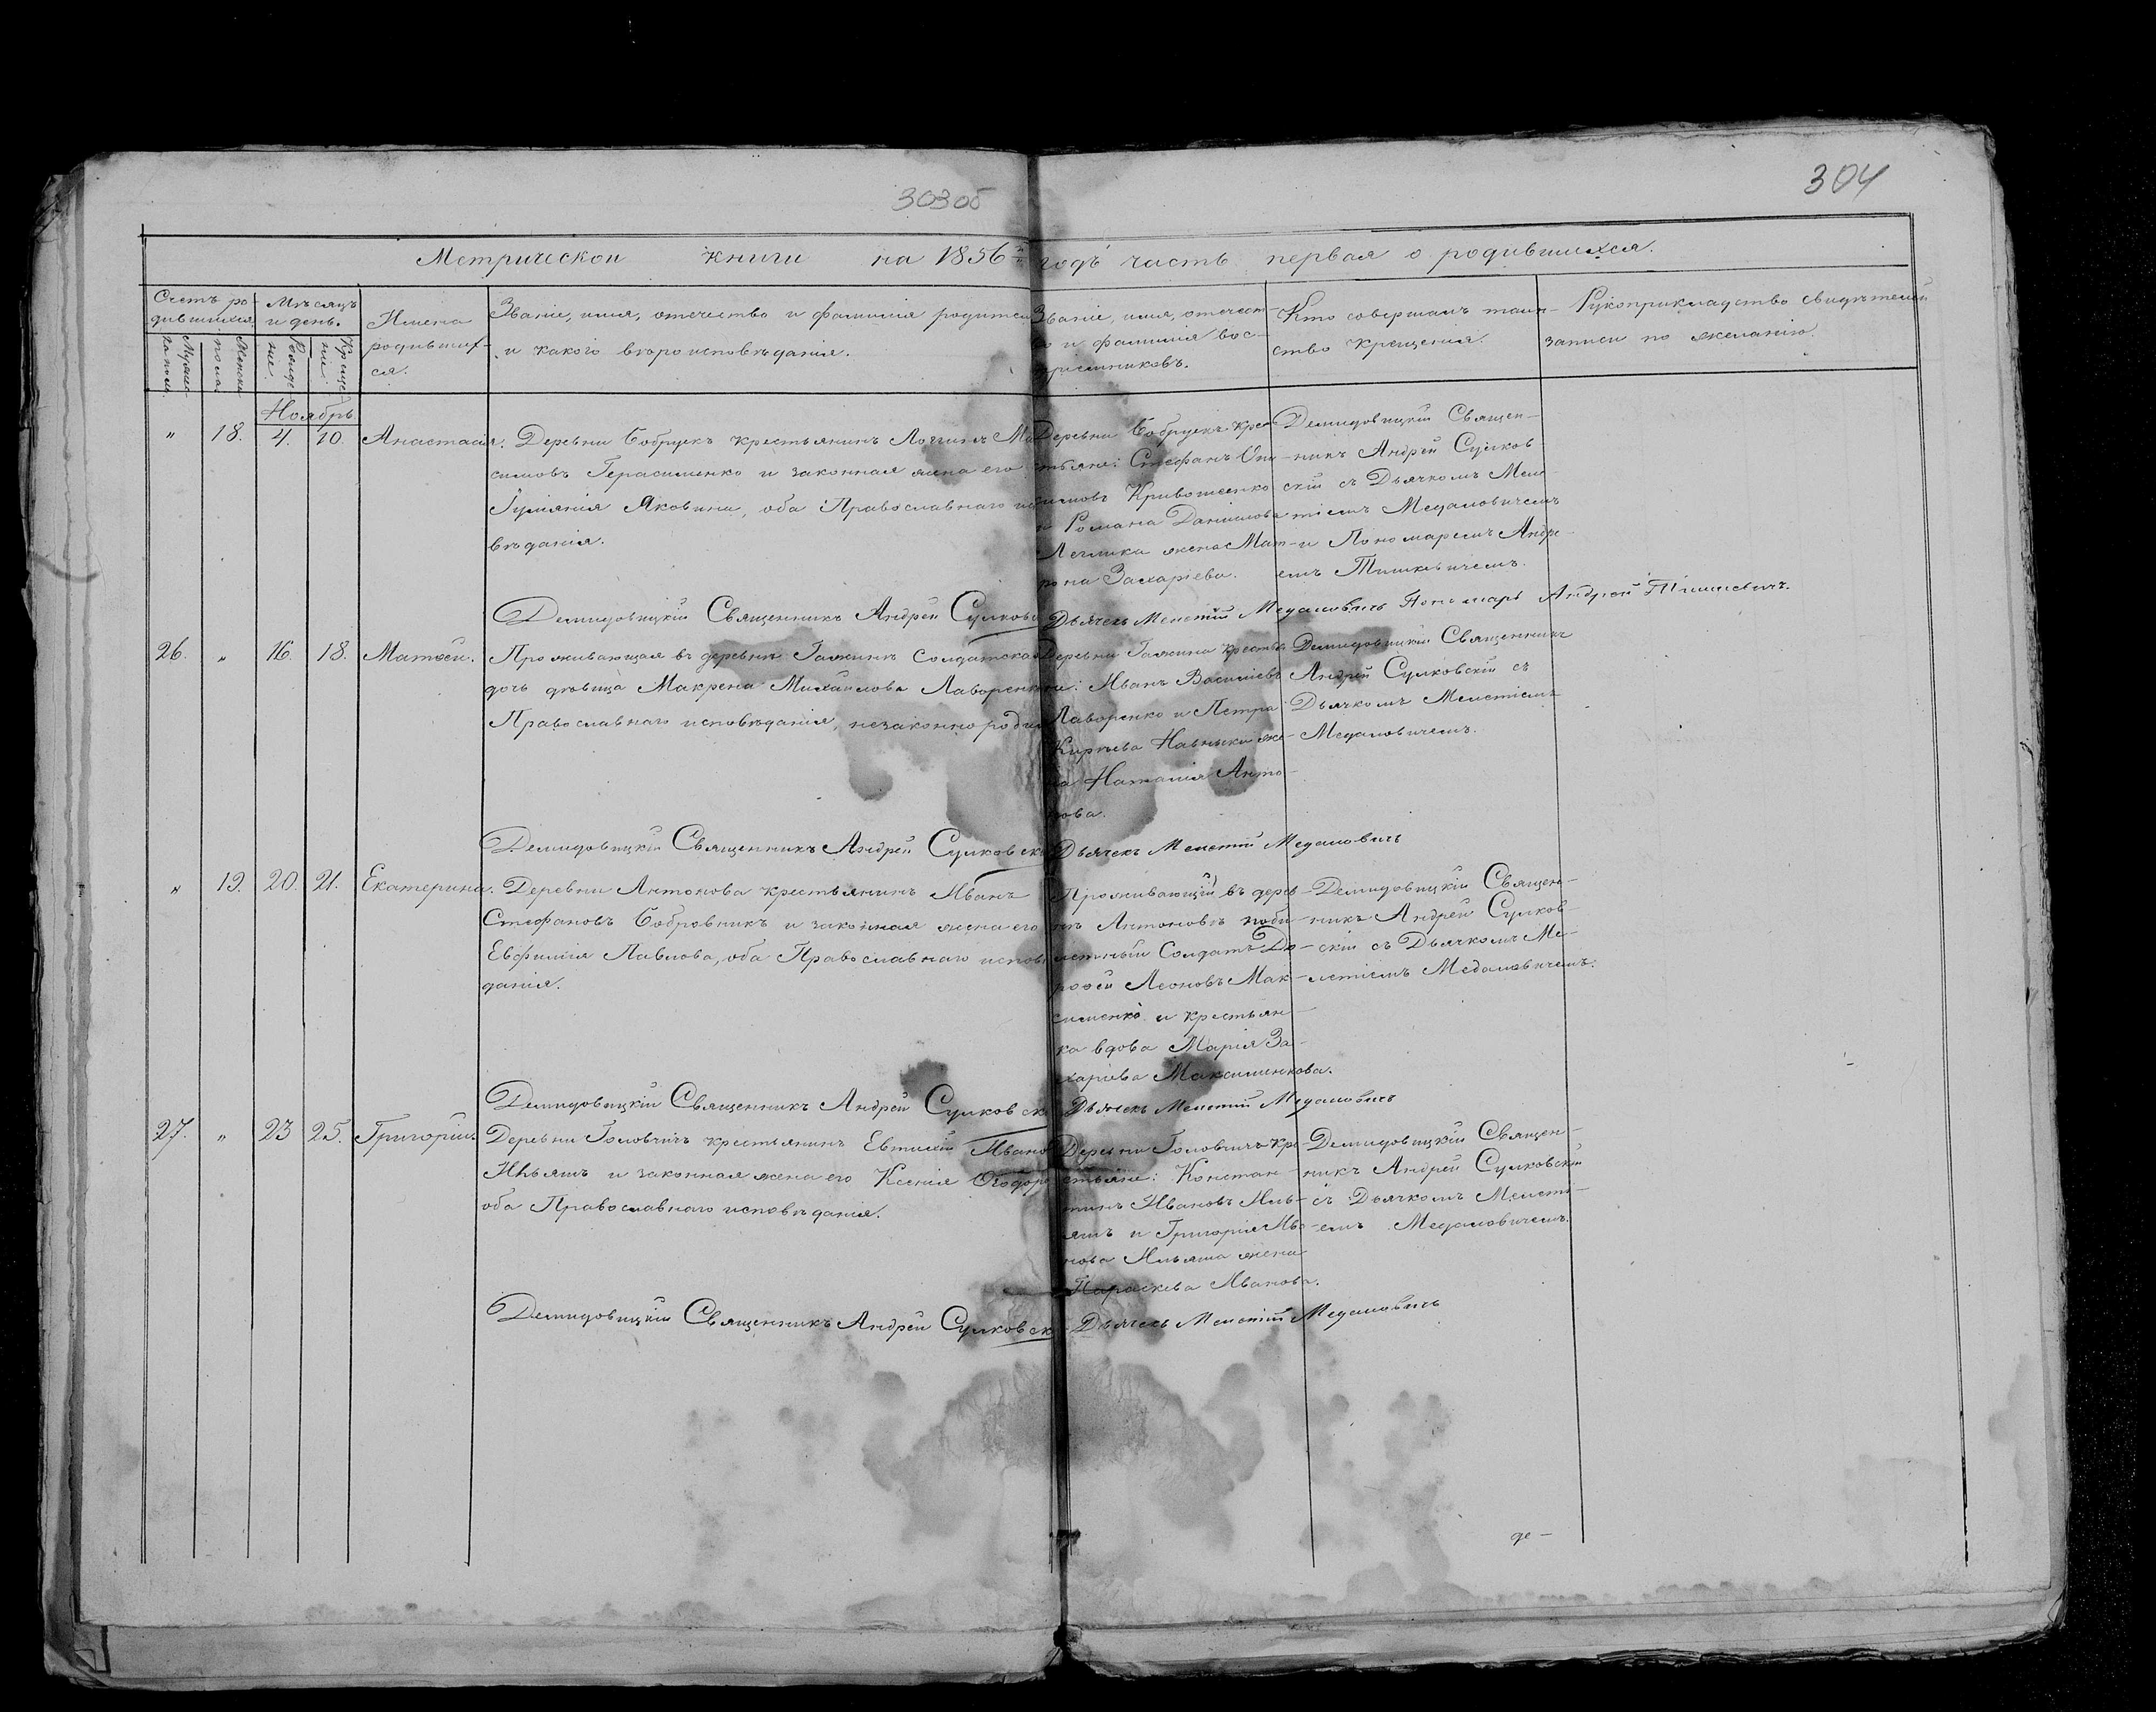 303об
304
Метрической книги на 1856й годъ часть первая о родившихся.
Счетъ родившихся
Мужеска пола.
Женска пола
Мѣсяцъ и день.
Рожденіе.
Крещеніе.
Имена родившихся.
Званіе, имя, отечество и фамилія родителей
и какого вѣроисповѣданія.
Званіе, имя, отечест
во и фамилія вос-
пріемниковъ.
Кто совершалъ таин-
ство крещенія.
Рукоприкладство свидѣтелей
записи по желанію.
Ноябрь
" 18. 4. 10. Анастасія.
Деревни Бобрукъ крестьянинъ Логгинъ Ма
симовъ Герасименко и законная жена его
Гуліянія Яковина, оба Православнаго ис
вѣданія.
Деревни Бобрукъ кре-
стьяне: Стефанъ Они-
симовъ Кривошеенко
и Романа Данилова
жена Мат-
рона Захаріева.
Демидовицкій Священ-
никъ Андрей Сулков-
скій съ Дьячкомъ Меле-
тіемъ Медаловичемъ
и Пономаремъ Андре-
емъ Тишкевичемъ.
Демидовицкій Священникъ Андрей Сулковс Дьячекъ Мелетій Медаловичъ Пономарь Андрей Тишкевичъ.
26. " 16. 18. Матѳей.
Проживающая въ деревнѣ Гажинѣ Солдатская
дочь дѣвица Макрена Михаилова Лаворенко
Православнаго исповѣданія, незаконнородил
Деревни Гажина крестья
не: Иванъ Василіевъ
Лаворенко и Петра
Кирѣева же-
на Наталія Анто-
нова.
Демидовицкій Священникъ
Андрей Сулковскій съ
Дьячкомъ Мелетіемъ
Медаловичемъ.
Демидовицкій Священникъ Андрей Сулковск Дьячекъ Мелетій Медаловичъ
" 19. 20. 21. Екатерина.
Деревни Антонова крестьянинъ Иванъ
Стефановъ Бобровникъ и законная жена его
Евфимія Павлова, оба Православнаго испов
данія.
Проживающій въ дерев-
нѣ Антоновѣ
Солдатъ До-
роѳей Леоновъ Мак-
сименко и крестьян-
ка вдова Марія За-
харіева Максименкова.
Демидовицкій Священ-
никъ Андрей Сулков-
скій съ Дьячкомъ Ме-
летіемъ Медаловичемъ.
Демидовицкій Священникъ Андрей Сулковск Дьячекъ Мелетій Медаловичъ
27. " 23 25. Григорій.
Деревни Головчичъ крестьянинъ Евтихій Ивано
Ильяшъ и законная жена его Ксенія Ѳеодор
оба Православнаго исповѣданія.
Деревни Головчичъ кре-
стьяне: Констан-
тинъ Ивановъ Иль-
яшъ и Григорія Ива-
нова Ильяша жена
Параскева Иванова.
Демидовицкій Священ-
никъ Андрей Сулковскій
съ Дьячкомъ Мелеті-
емъ Медаловичемъ.
Демидовицкій Священникъ Андрей Сулковск Дьячекъ Мелетій Медаловичъ
де-